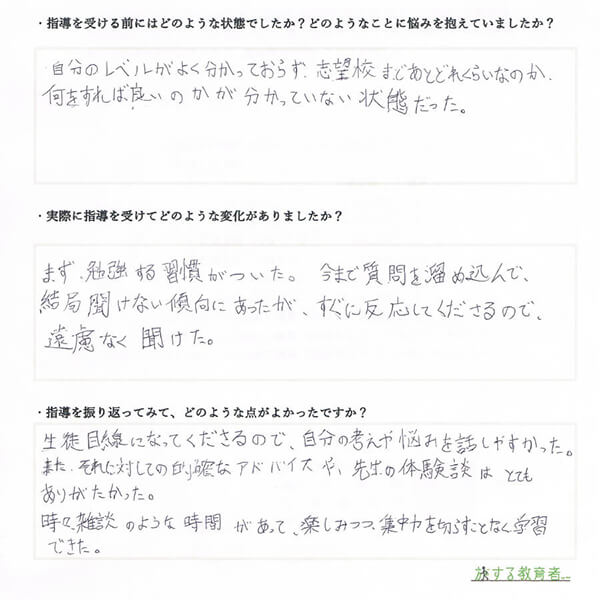 ・指導を受ける前にはどのような状態でしたか？どのようなことに悩みを抱えていましたか？
自分のレベルがよく分かっておらず、志望校まであとどれくらいなのか、
何をすれば良いのかが分かっていない状態だった。
・実際に指導を受けてどのような変化がありましたか？
まず、勉強する習慣がついた。 今まで質問を溜め込んで、
結局聞けない傾向にあったが、すぐに反応してくださるので、
遠慮なく聞けた。
・指導を振り返ってみて、どのような点がよかったですか？
生徒目線になってくださるので、自分の考えや悩みを話しやすかった。
また、それに対しての的確なアドバイスや、先生の体験談はとても
ありがたかった。
時々、雑談のような時間があって、楽しみつつ、集中力を切らすことなく学習
できた。
旅する教育者